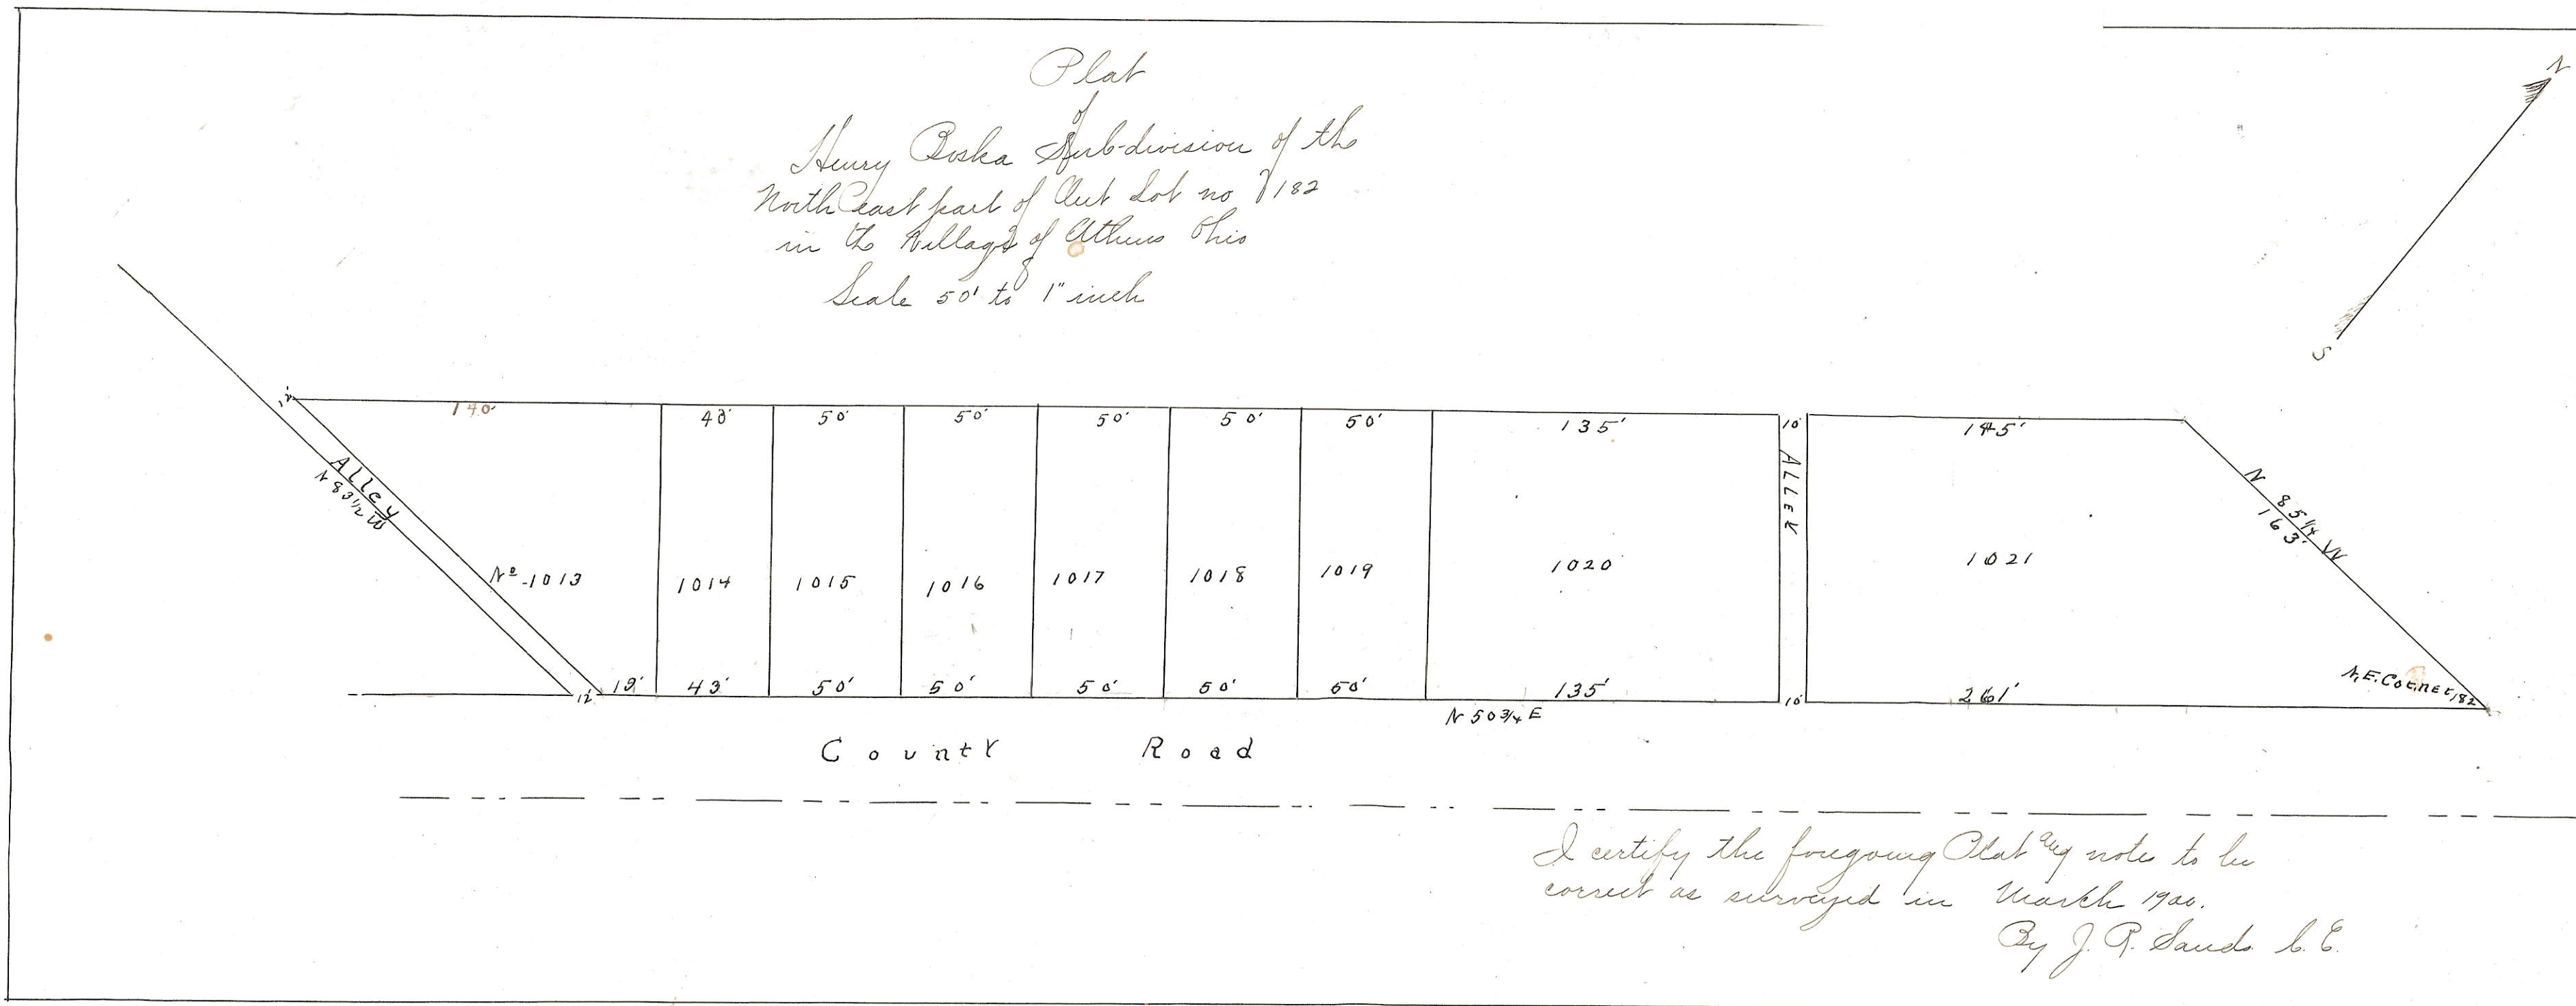 Plat
of
Henry Boska Sub-division of the
North East part of Out Lot no 182
in the Village of Athens Ohio
Scale 50' to 1" inch
N
S
12'
140'
43'
50'
50'
50'
50'
50'
135'
10'
145'
Alley
N 83 1/2 W
ALLEY
N 85 1/4 W
163'
No -1013
1014
1015
1016
1017
1018
1019
1020
1021
12'
19'
43'
50'
50'
50'
50'
50'
135'
10'
261'
N.E. Corner 182
N 50 3/4 E
County Road
I certify the foregoing Plat and notes to be
correct as surveyed in March 1900.
By J. R. Sands C. E.